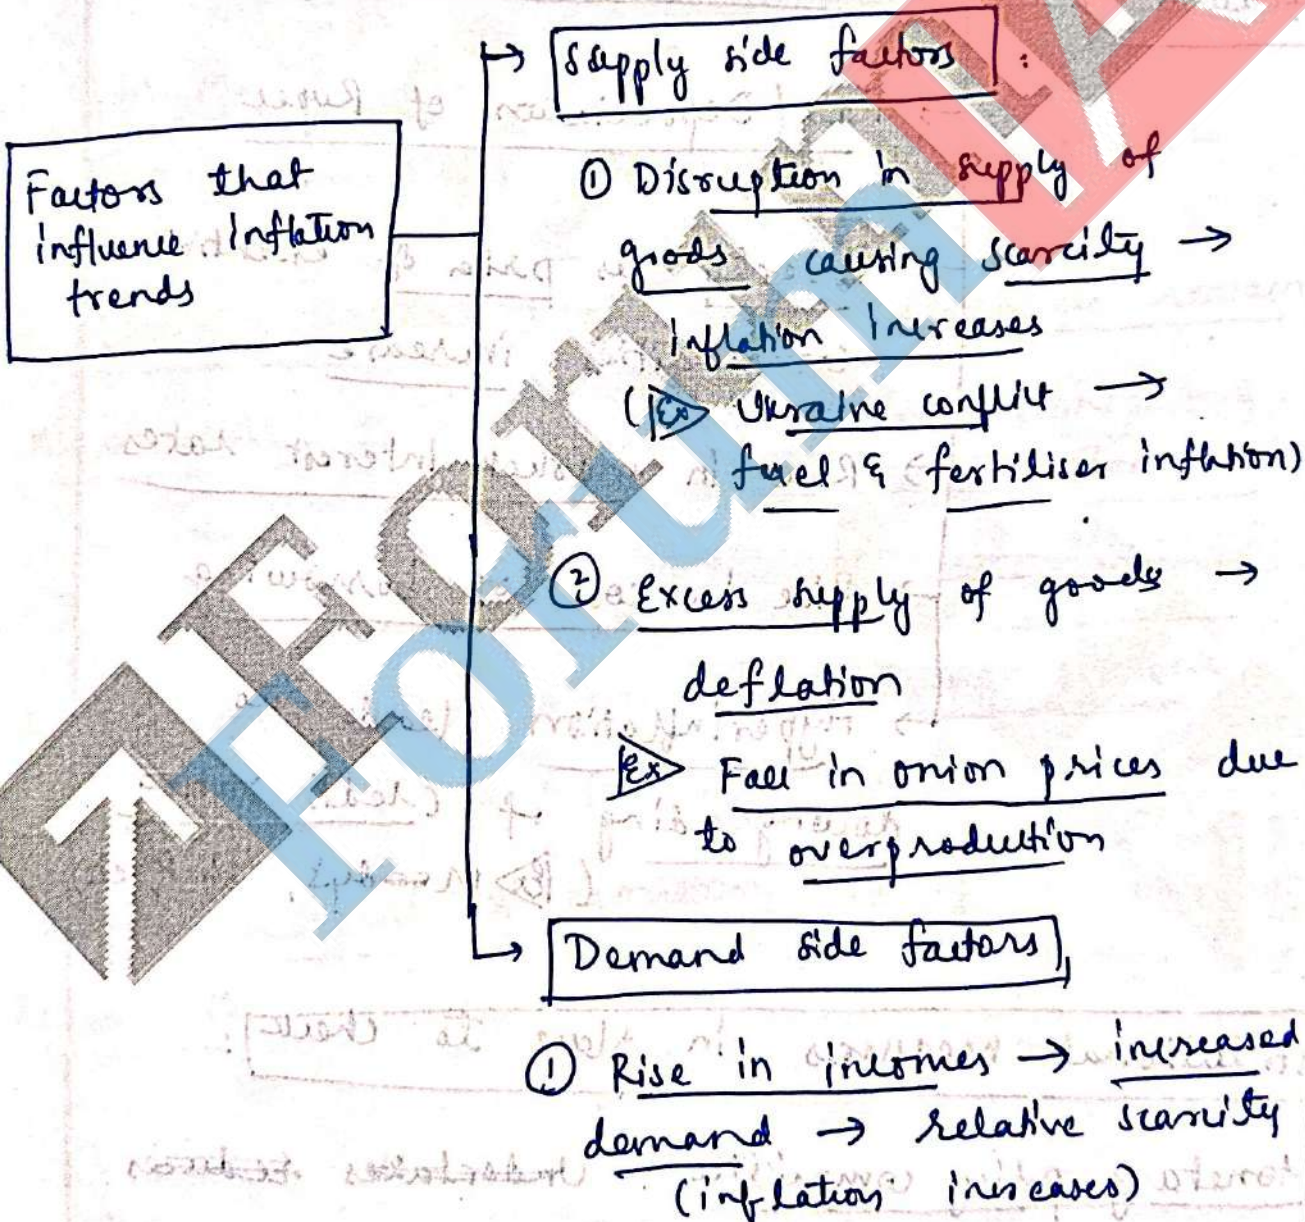 Factors that
influence inflation
trends
→ Supply side factors :
① Disruption in supply of
goods causing scarcity →
inflation increases
(Ex Ukraine conflict →
fuel & fertiliser inflation)
② Excess supply of goods →
deflation
Ex Fall in onion prices due
to overproduction
→ Demand side factors
① Rise in incomes → increased
demand → relative scarcity
(inflation increases)
Forum